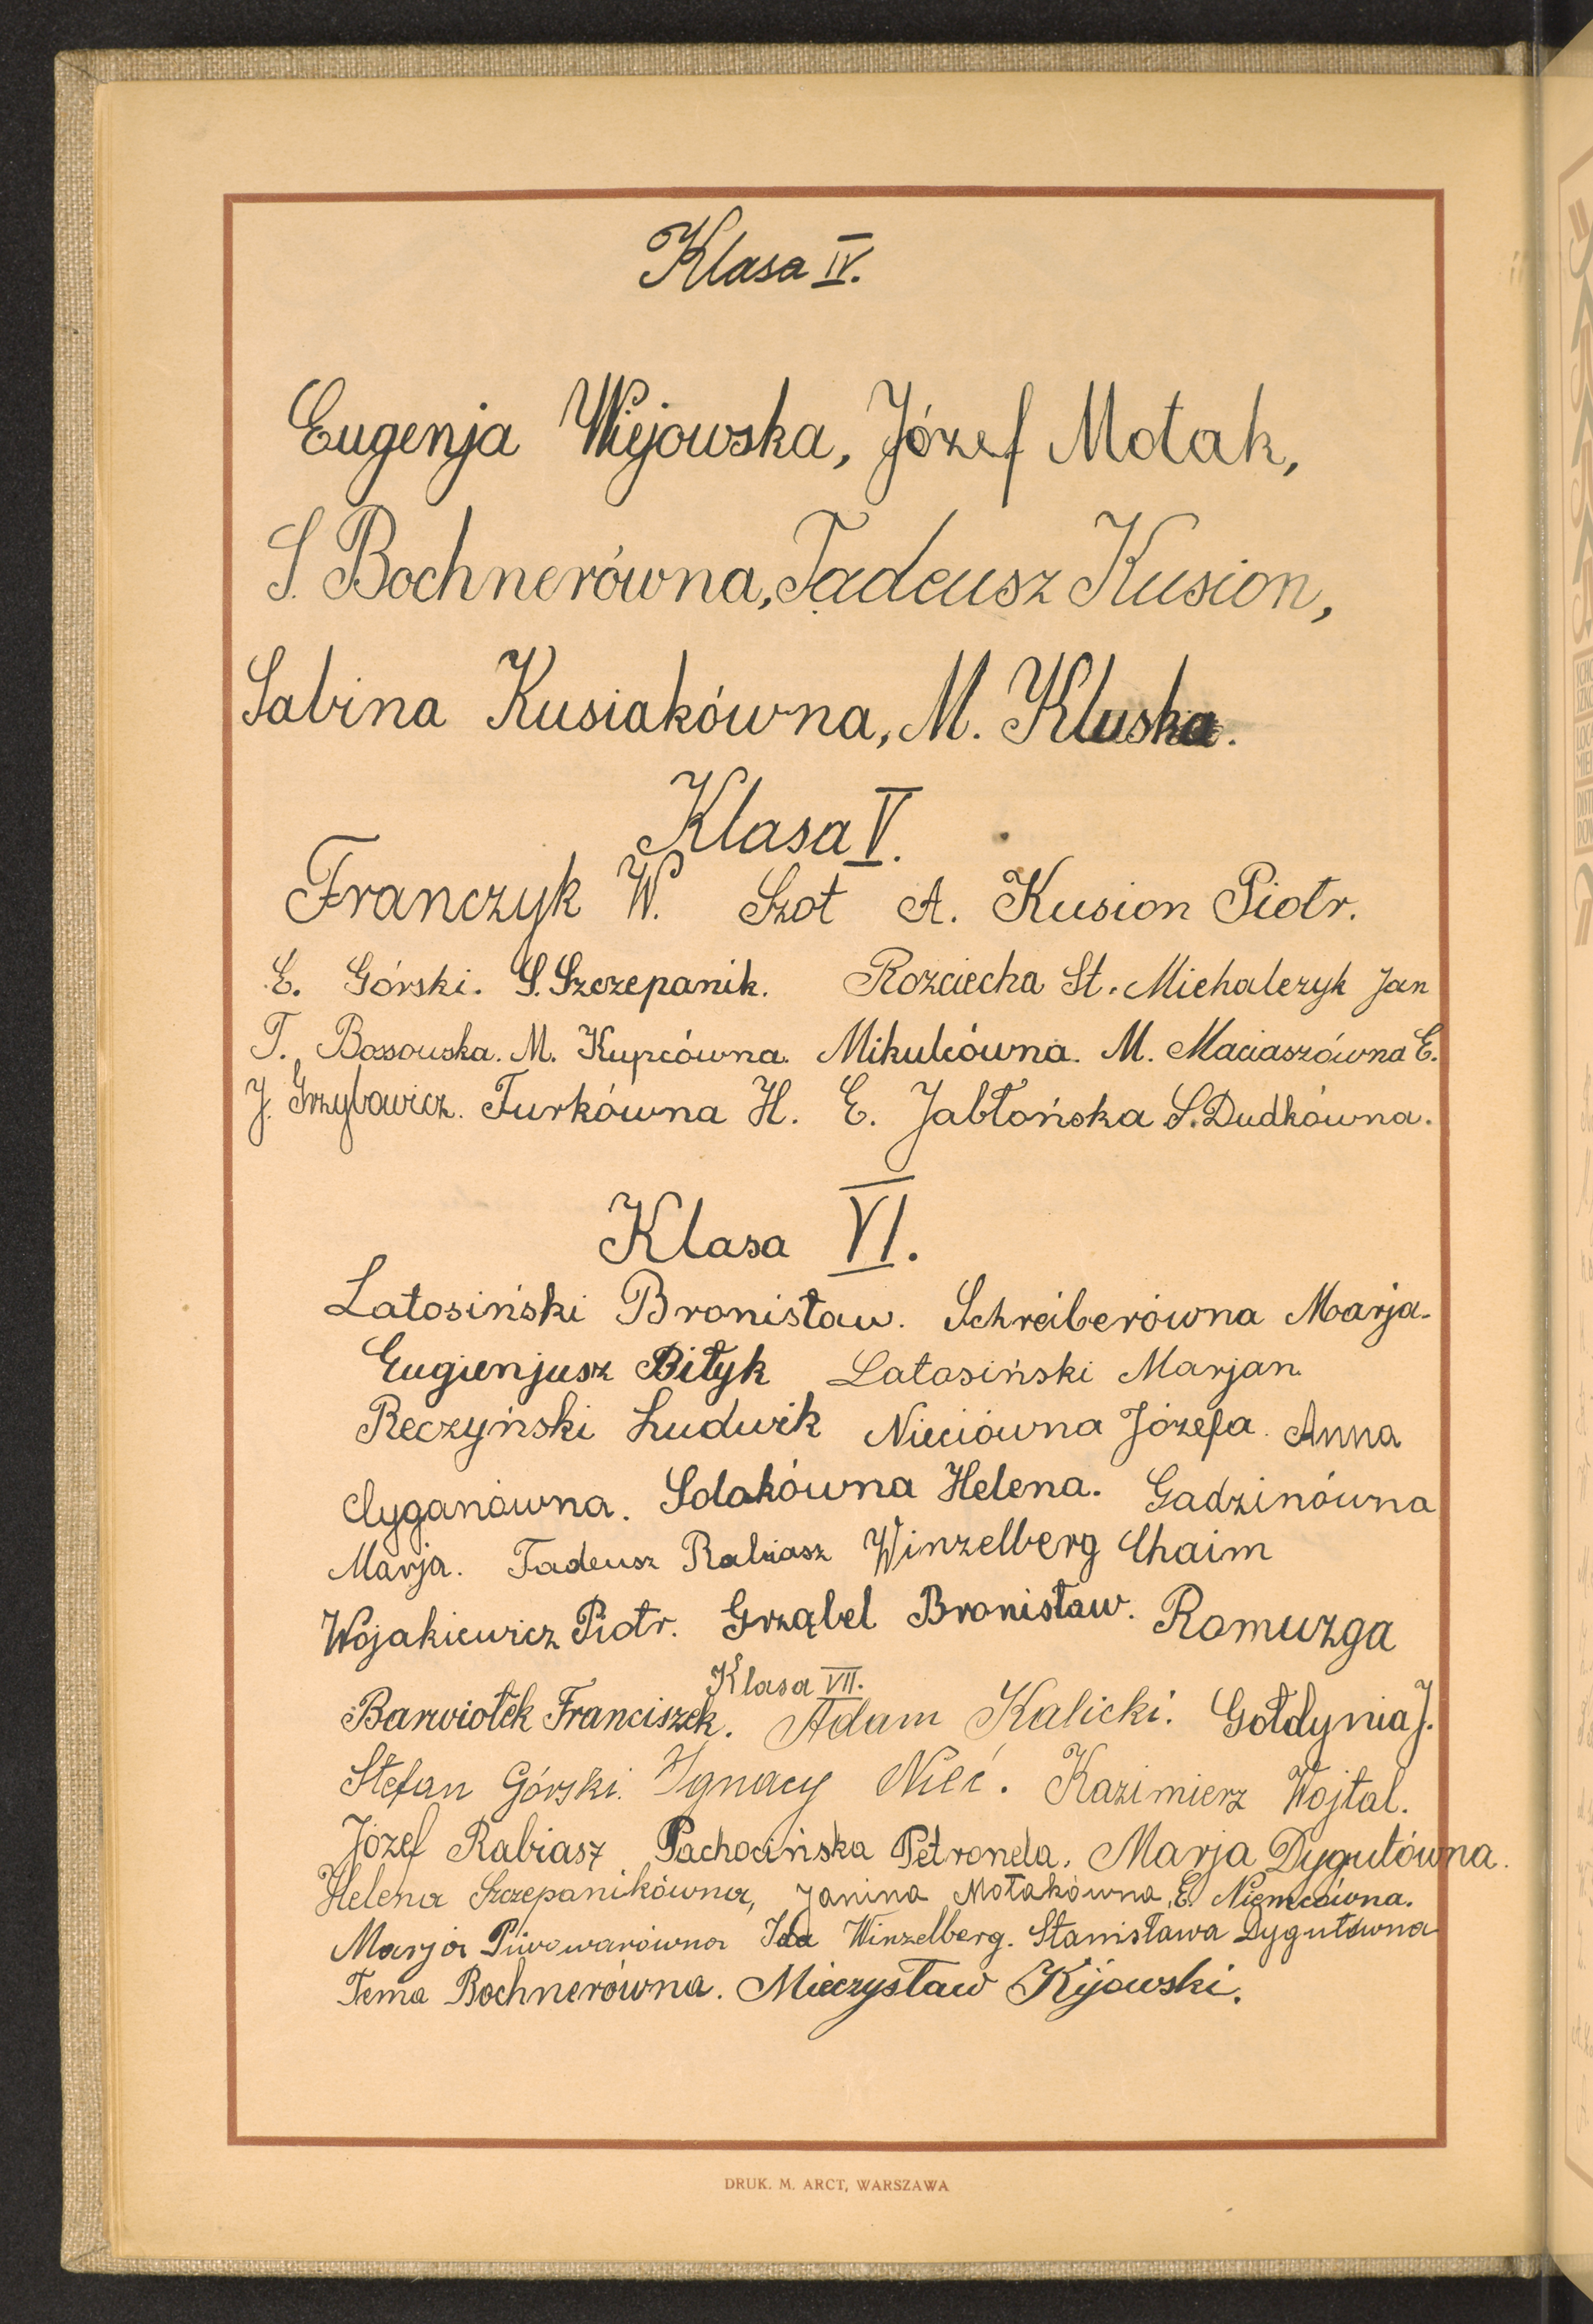 Klasa IV.
Eugenja Wiejowska, Józef Motak,
S. Bochnerówna, Tadeusz Kusion,
Sabina Kusiakówna, M. Kluska.
Klasa V.
Franczyk W. Szot A. Kusion Piotr.
E. Górski. S. Szczepanik. Rozciecha St. Michalczyk Jan
T. Bossowska. M. Kupcówna. Mikulcówna. M. Maciaszówna E.
J. Grzybowicz. Turkówna H. E. Jabłońska S. Dudkówna.
Klasa VI.
Latosiński Bronisław. Schreiberówna Marja.
Eugienjusz Bityk Latosiński Marjan.
Reczyński Ludwik Nieciówna Józefa. Anna
Cyganówna. Solakówna Helena. Gadzinówna
Marja. Tadeusz Rabiasz Winzelberg Chaim
Wojakiewicz Piotr. Grząbel Bronisław. Romuzga
Klasa VII.
Barwiołek Franciszek. Adam Kalicki. Gołdynia J.
Stefan Górski. Ignacy Nieć. Kazimierz Wojtal.
Józef Rabiasz Pachocińska Petronela. Marja Dygutówna.
Helena Szczepanikówna, Janina Motakówna, E. Niemcówna.
Marja Piwowarówna Ida Winzelberg. Stanisława Dygutówna
Tema Bochnerówna. Mieczysław Kijowski.
DRUK. M. ARCT, WARSZAWA